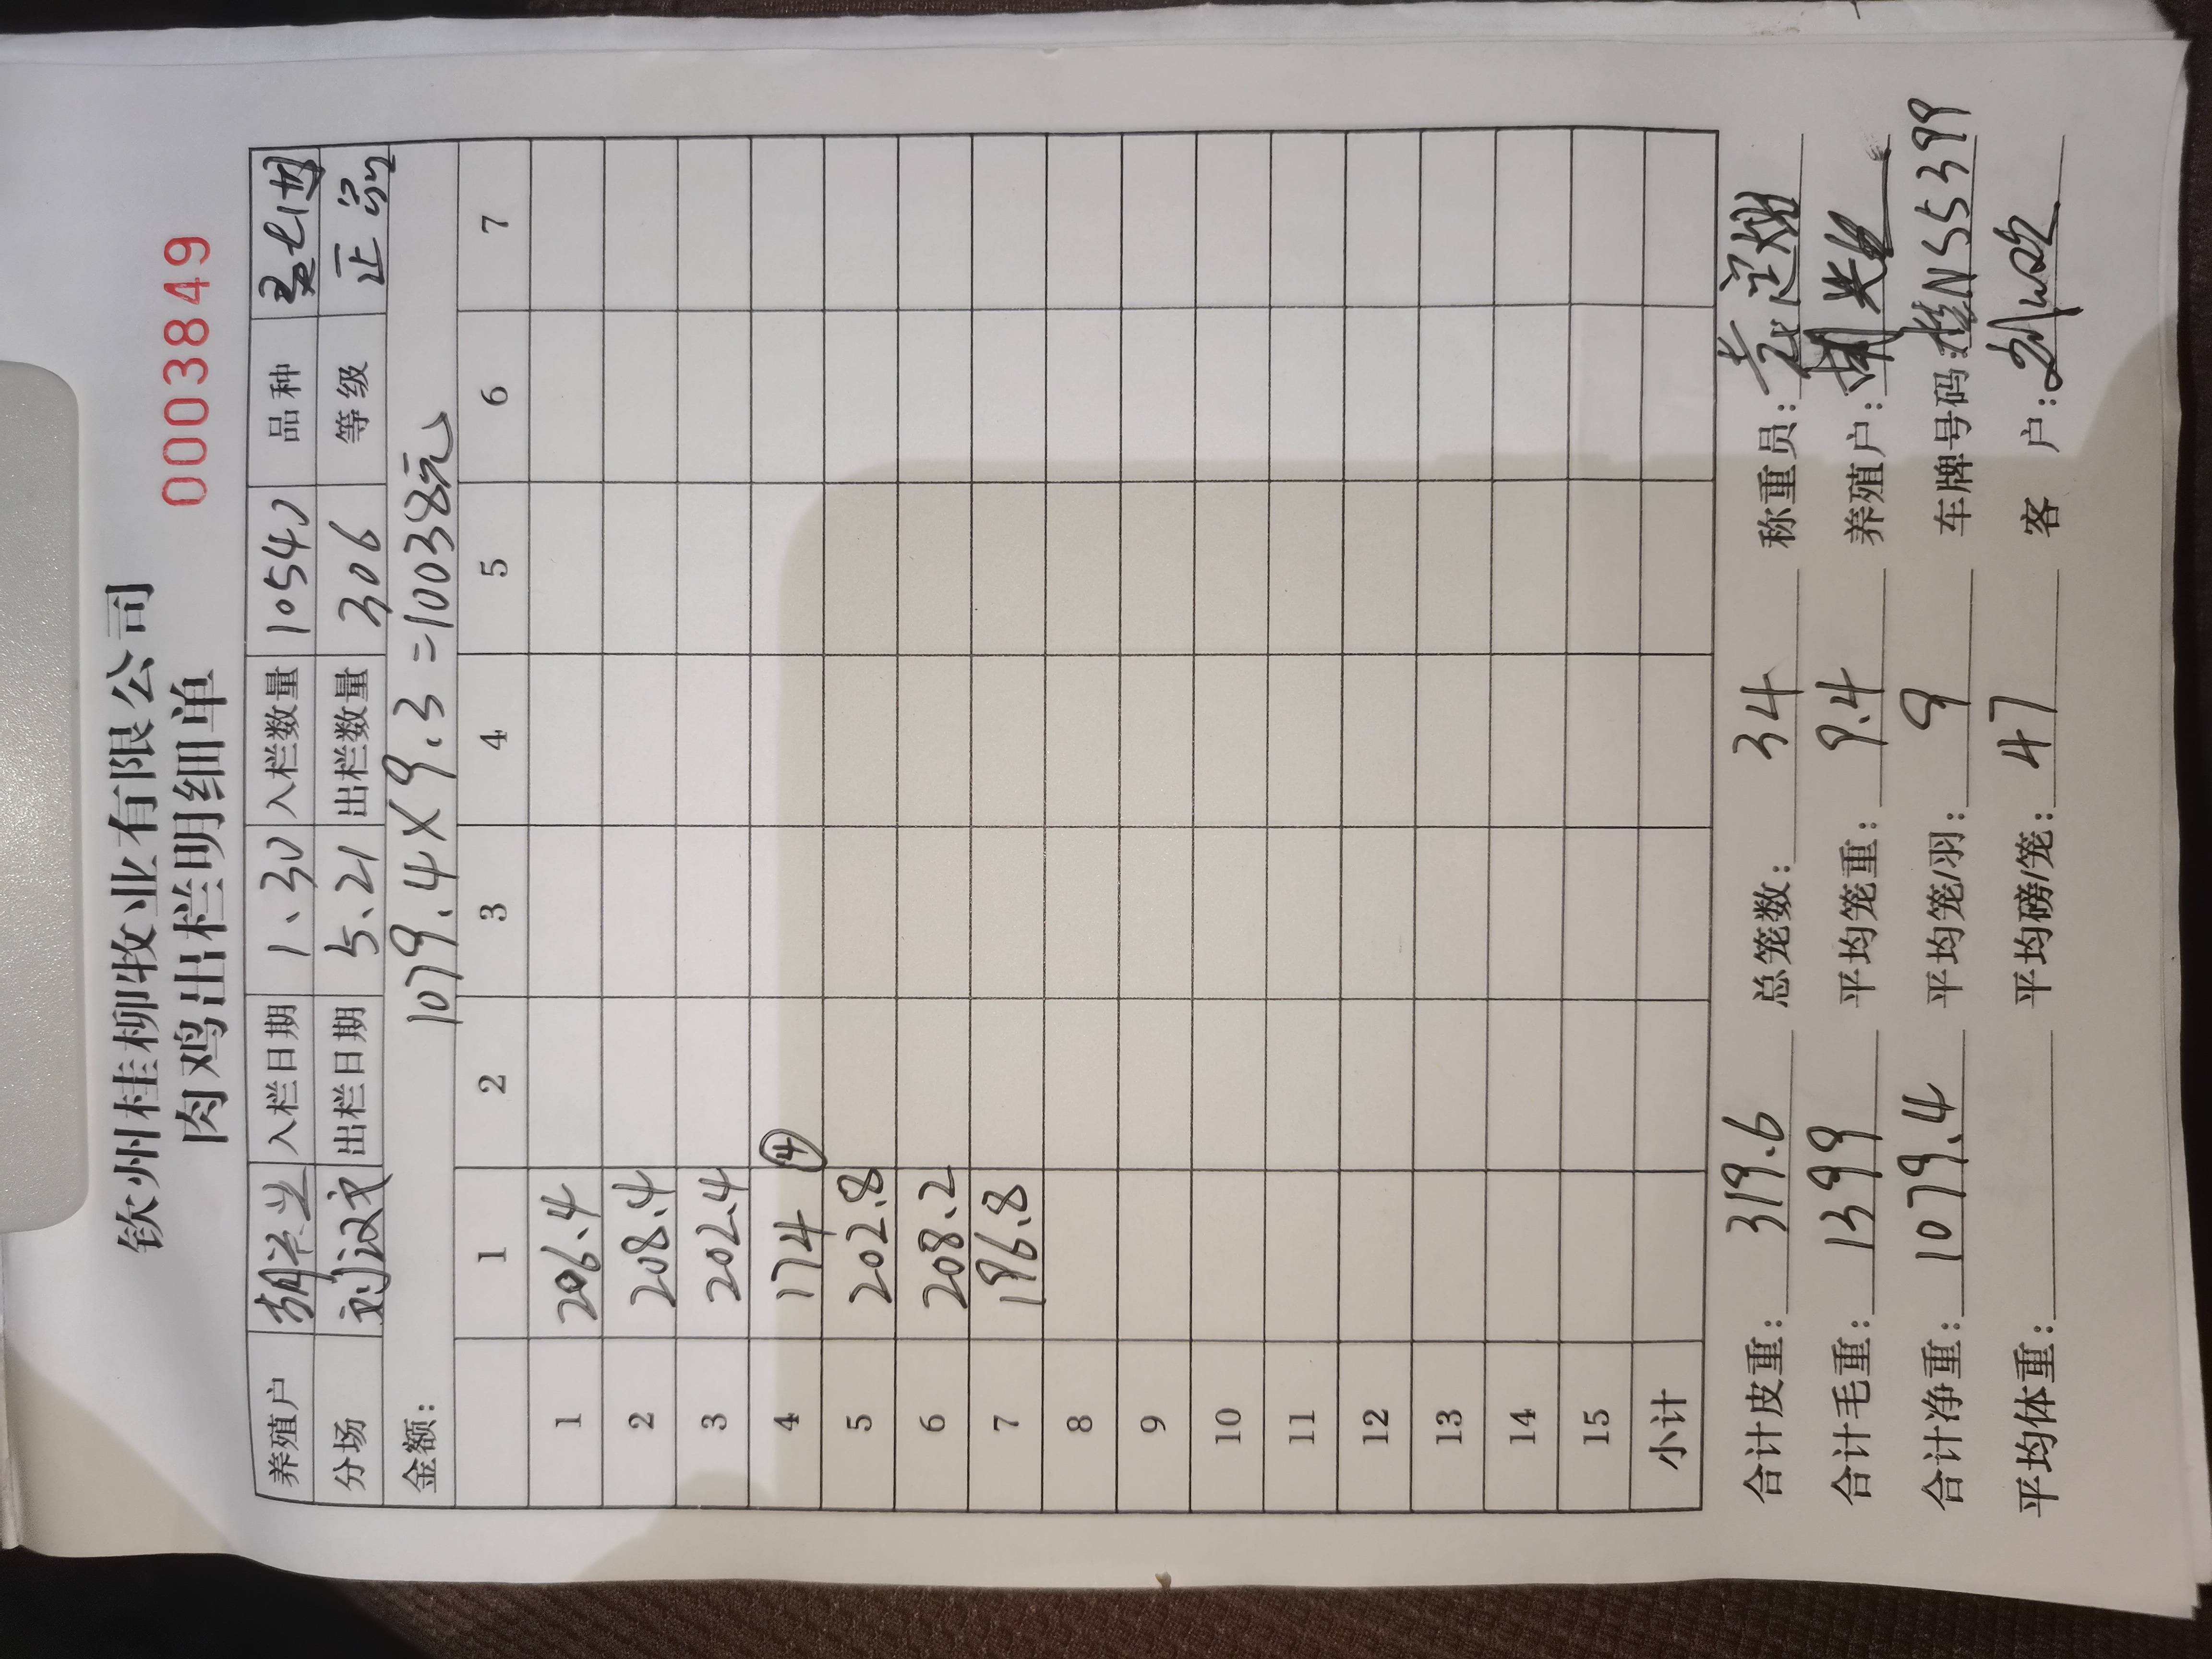 钦州桂柳牧业有限公司
肉鸡出栏明细单
0003849
养殖户 胡兴业 入栏日期 1、30 入栏数量 10540 品种
分场 刘汉文 出栏日期 5、21 出栏数量 306 等级 正品
金额: 1079.4×9.3=10038元
1 2 3 4 5 6 7
1 206.4
2 208.4
3 202.4
4 174 ④
5 202.8
6 208.2
7 196.8
8
9
10
11
12
13
14
15
小计
合计皮重: 319.6 总笼数: 34 称重员:
合计毛重: 1399 平均笼重: 9.4 养殖户: 胡兴业
合计净重: 1079.4 平均笼/羽: 9 车牌号码: 桂N55399
平均体重: 平均磅/笼: 47 客 户: